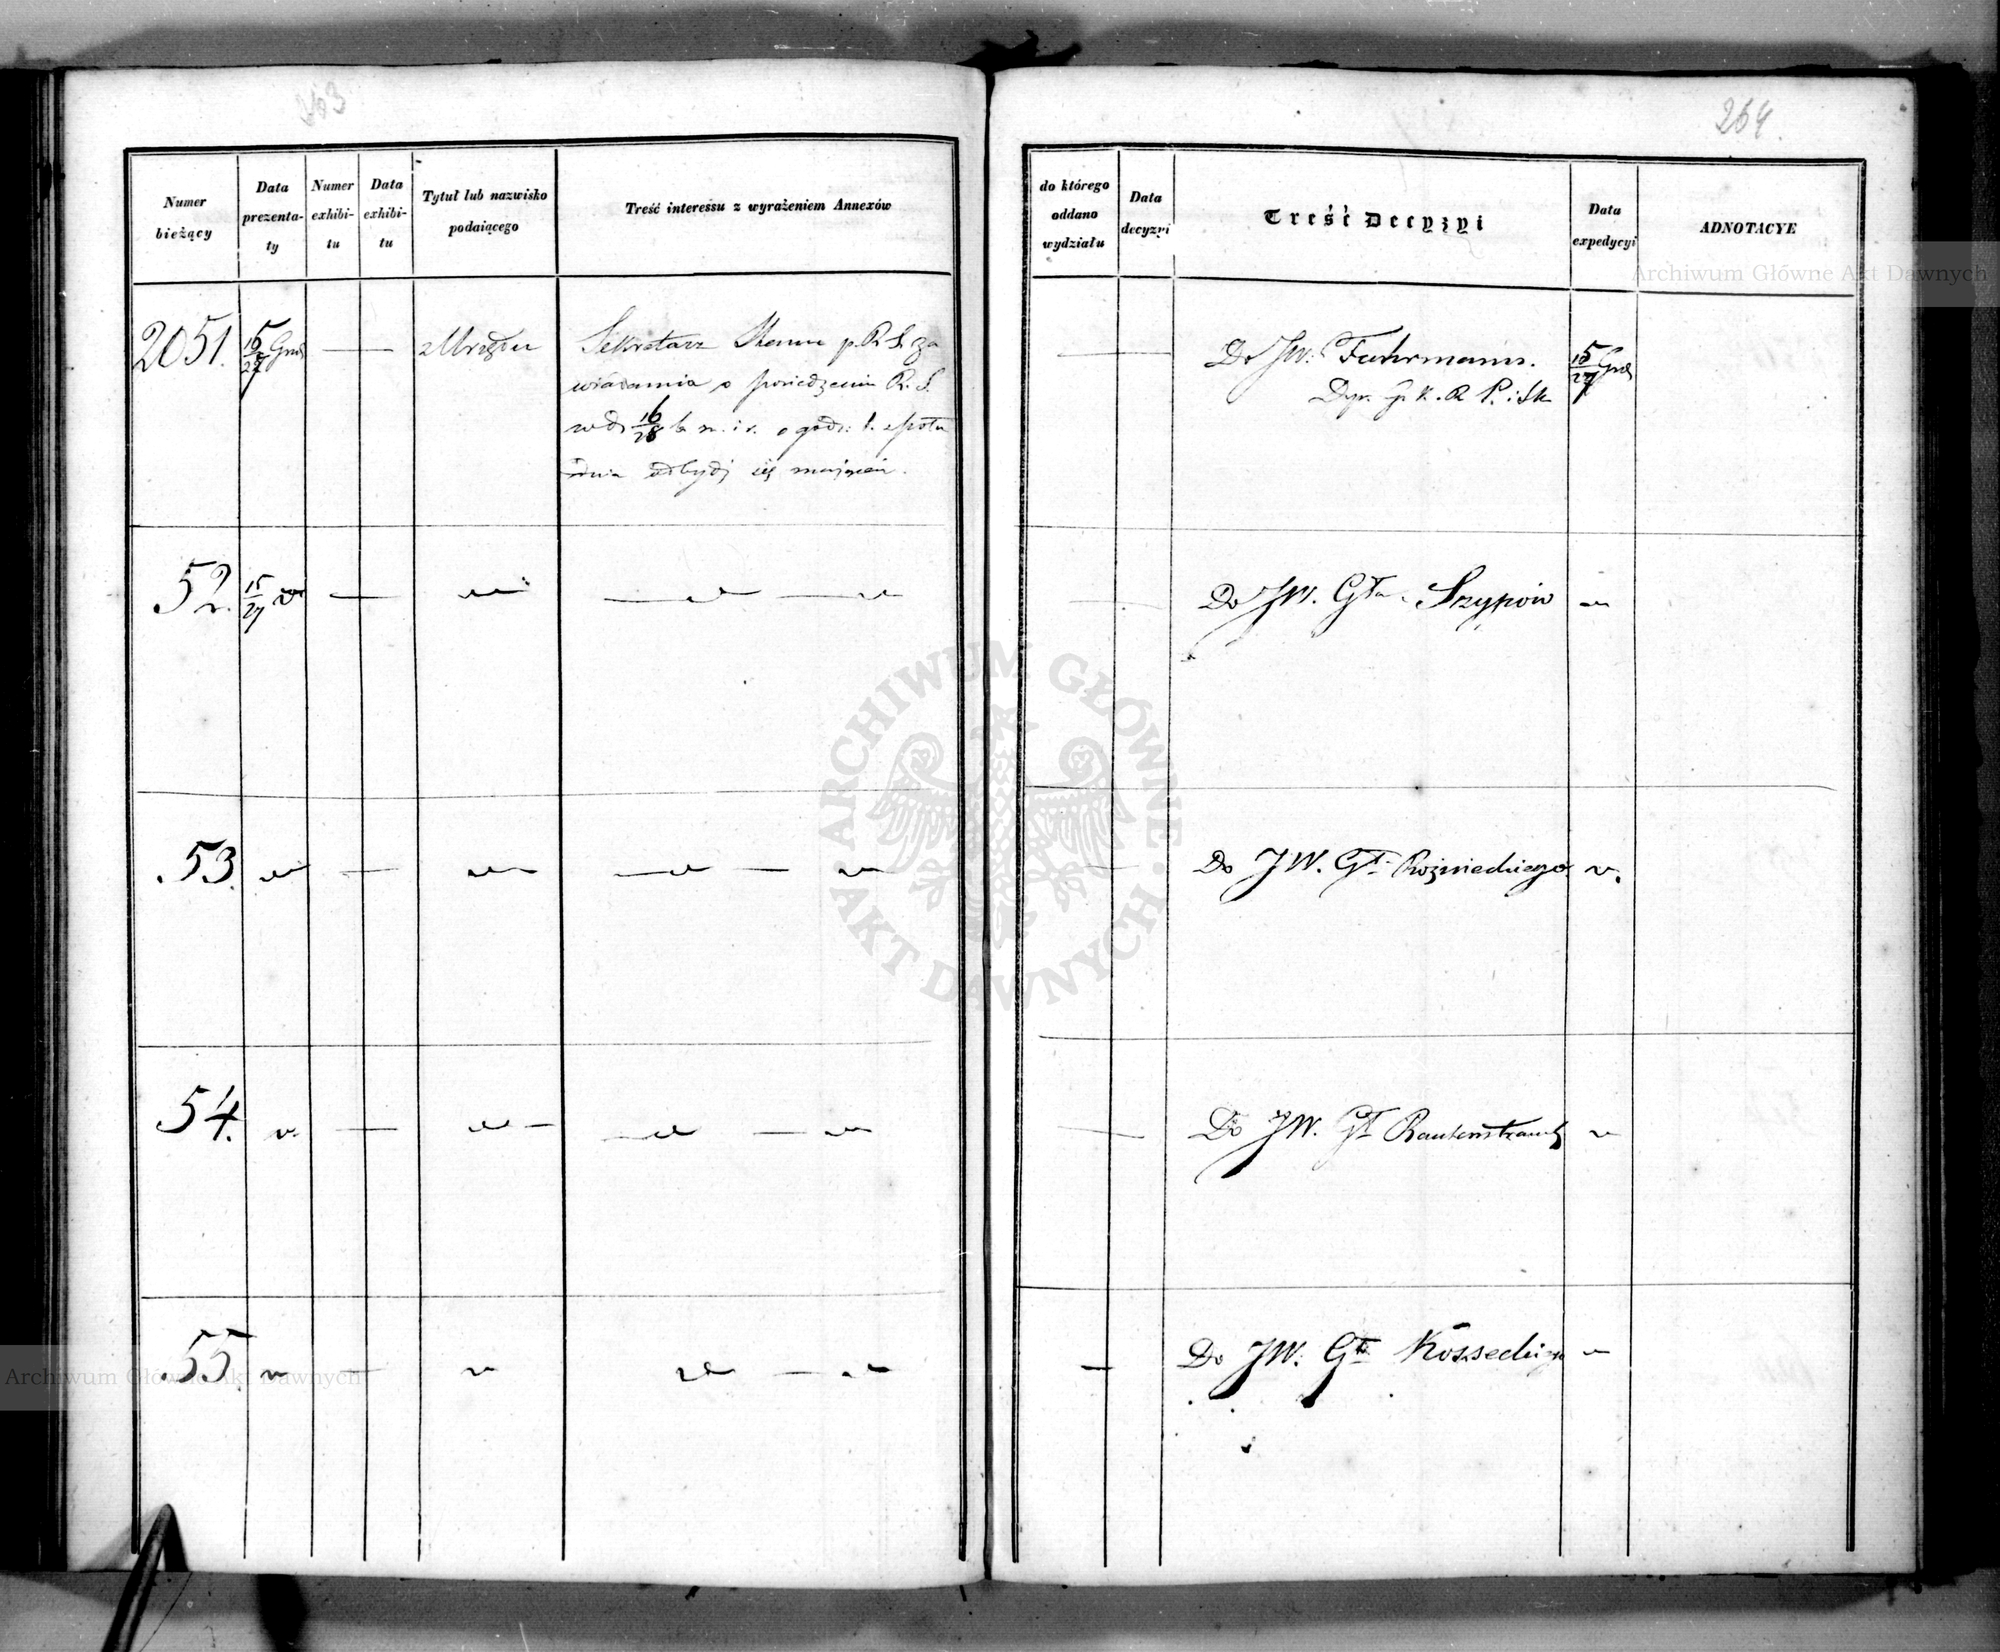 263
Numer bieżący
Data prezenta-ty
Numer exhibi-tu
Data exhibi-tu
Tytuł lub nazwisko podaiącego
Treść interessu z wyrażeniem Annexów
2051.
15/27 Grud
z Urzędu
Sekretarz Stanu p. R. S. za
wiadamia o posiedzeniu R. S.
w d. 16/28 b. m. i r. o godz: 1. z połu
dnia odbydź się mającem.
52.
15/27
53.
54.
55.
264.
do którego oddano wydziału
Data decyzyi
Treść Decyzyi
Data expedycyi
ADNOTACYE
Do JW. Fuhrmann.
Dyr. G. K. R. P. i Sk
15/27 Grud
Do JW. Gła. Szypow
Do JW. Gła Rożnieckiego
Do JW. Gła Rautenstrauch
Do JW. Gła Kosseckiego
Archiwum Główne Akt Dawnych
ARCHIWUM GŁÓWNE AKT DAWNYCH
Archiwum Główne Akt Dawnych